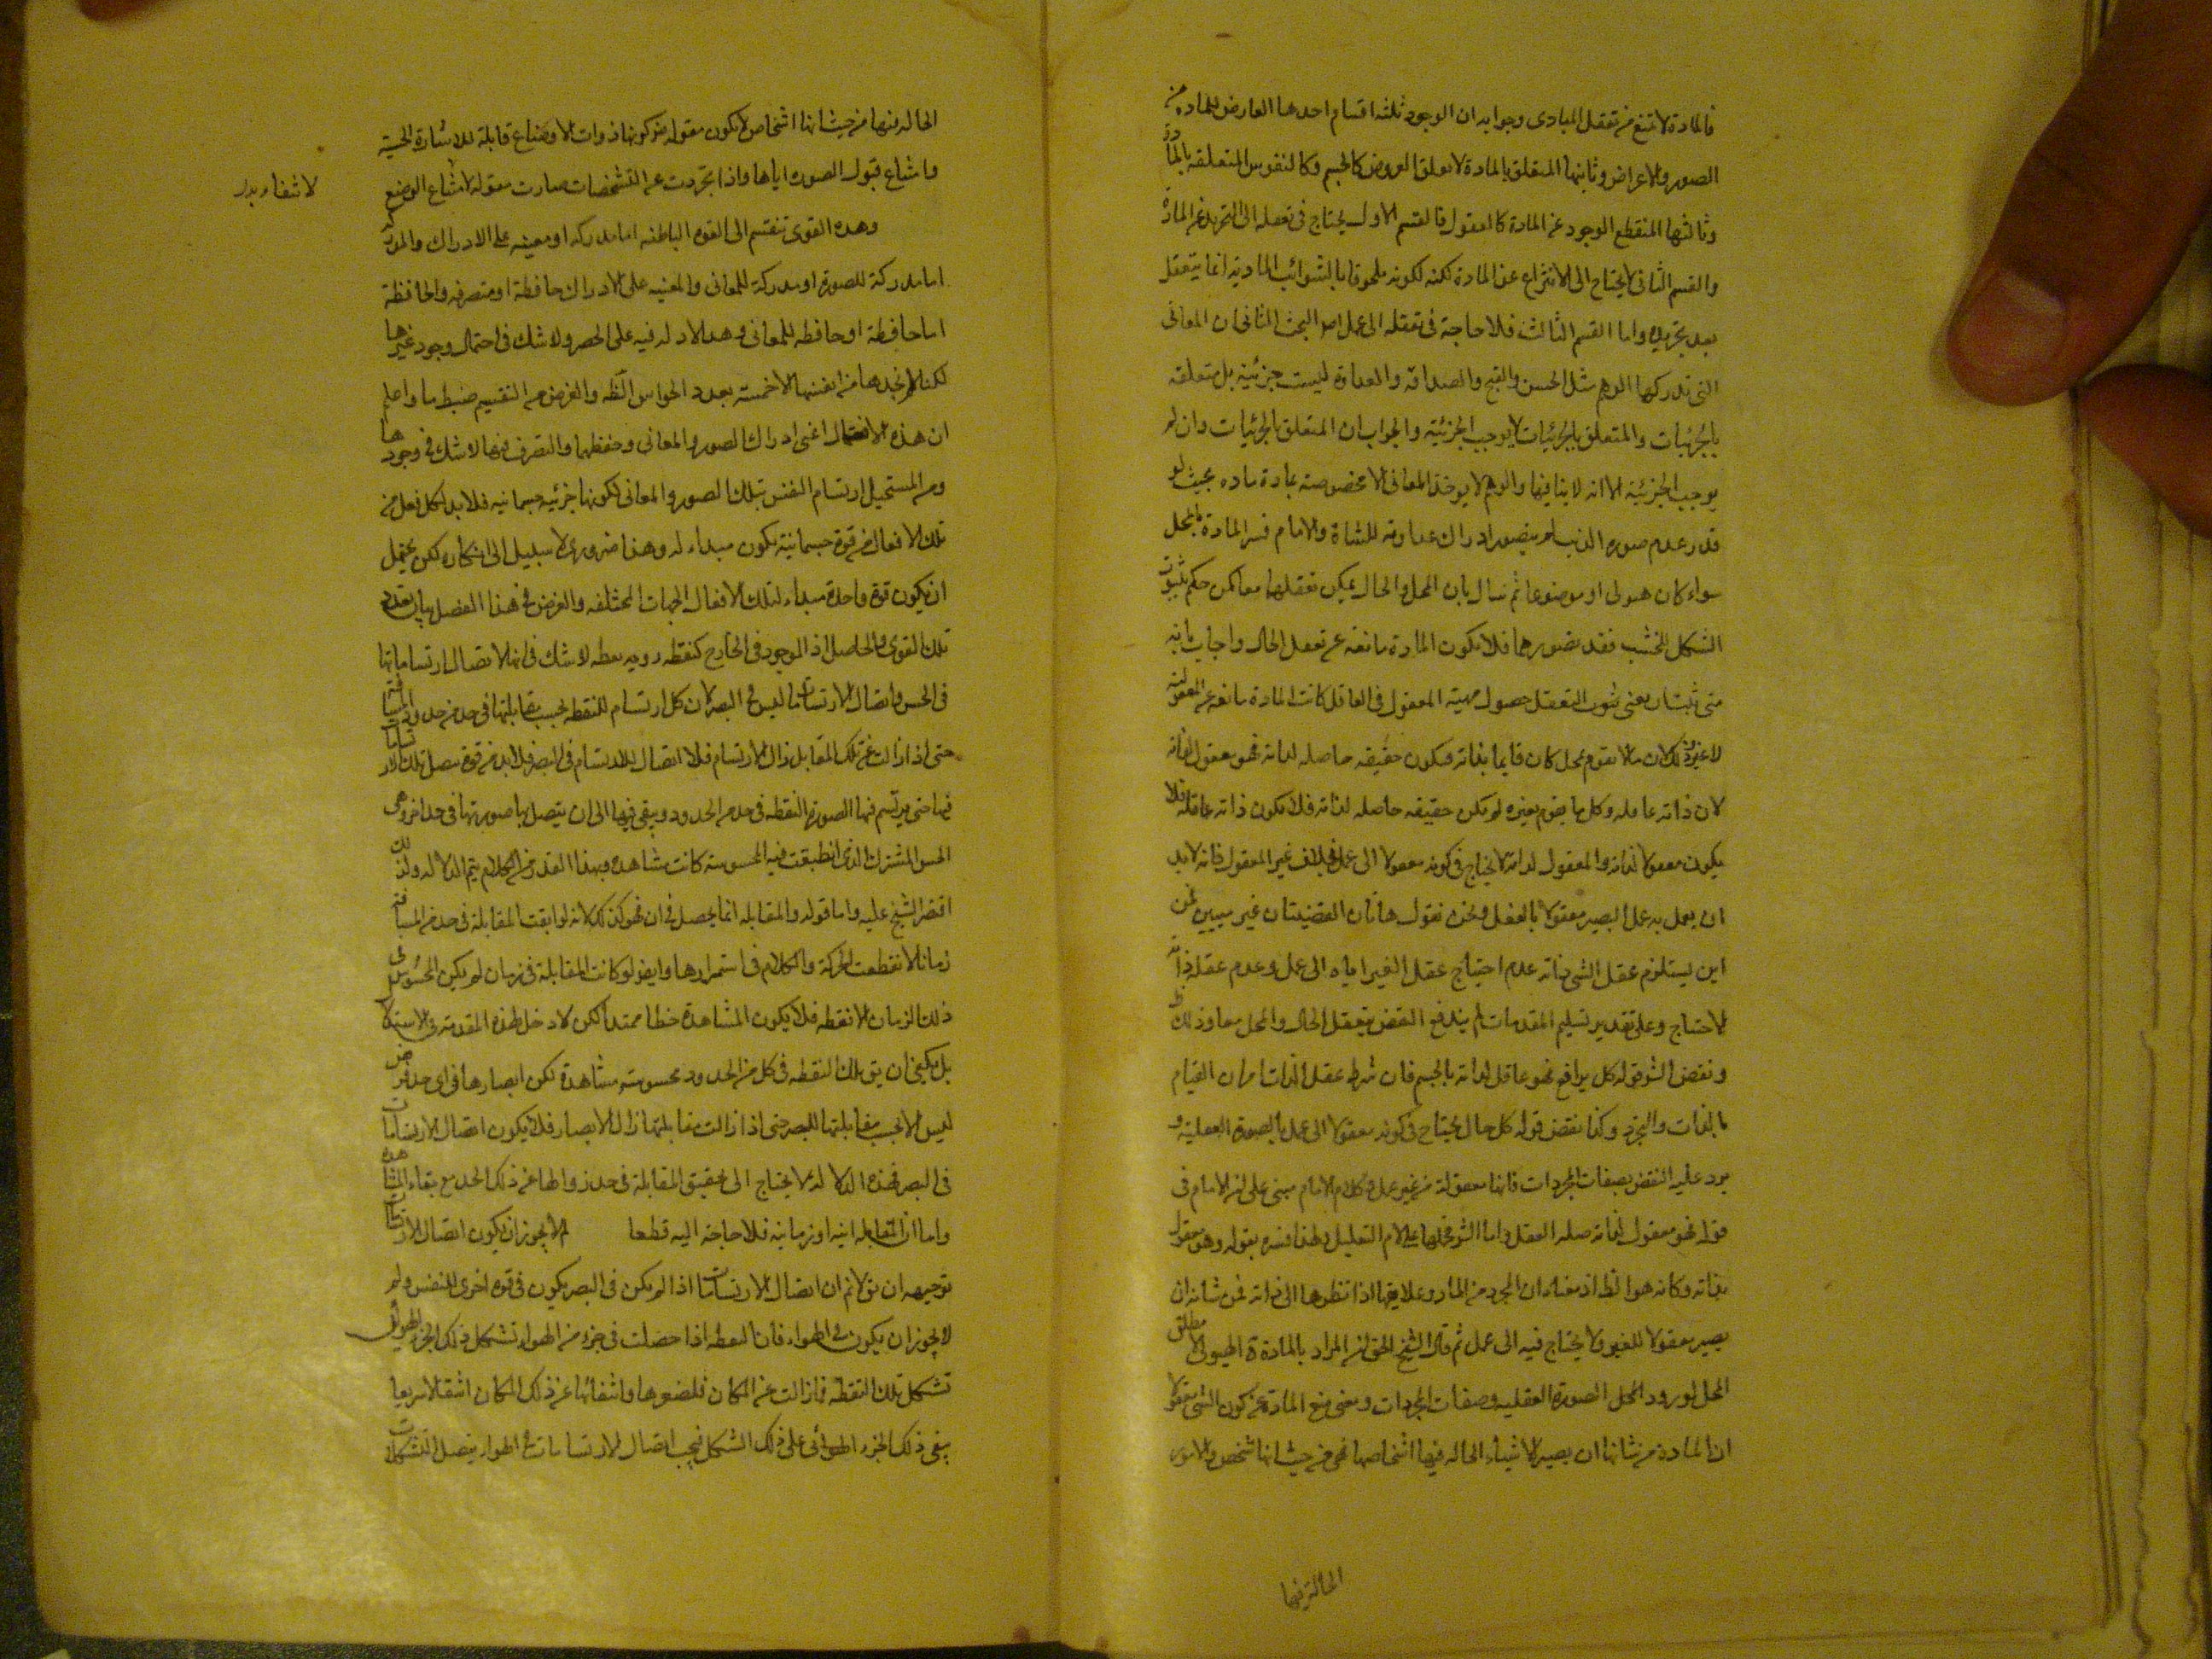 فالمادة لا تمنع من تعقل المبادى وجوابه ان الوجود ثلثة اقسام احدها العارض للمادة من
الصور والاعراض وثانيها المتعلق بالمادة لا تعلق العروض كالجسم وكالنفوس المتعلقه بالمادة
وثالثها المنقطع الوجود عن المادة كالعقول فالقسم الاول يحتاج فى تعقله الى التجريد عن المادة
والقسم الثانى لا يحتاج الى الانتزاع عن المادة لكنه لكونه ملحوقا بالشوائب المادية انما يتعقل
بعد تجريده واما القسم الثالث فلا حاجة فى تعقله الى عمل اصلا البحث الثانى ان المعانى
التى تدركها الوهم مثل الحسن والقبح والصداقة والعداوة ليست جزئية بل متعلقه
بالجزئيات والمتعلق بالجزئيات لا يوجب الجزئية والجواب ان المتعلق بالجزئيات وان لم
يوجب الجزئية الا انه لا ينافيها والوهم لا يوخذ المعانى الا مخصوصة بمادة مادة بحيث لو
قدر عدم صورة الذئب لم يتصور ادراك عداوته للشاة والامام فسر المادة بالمحل
سواء كان هيولى او موضوعا ثم سال بان المحل والحال يمكن تعقلهما معا كمن حكم بثبوت
الشكل للخشب فقد تصورهما فلا يكون المادة مانعة عن تعقل الحال واجاب بانه
متى ثبت ان معنى ثبوت التعقل حصول مهية المعقول فى العاقل كانت المادة مانعة عن المعقولية
لا غير وذلك لان ما لا يقوم بمحل كان قايما بذاته فيكون حقيقته حاصله لذاته فهو معقول لذاته
لان ذاته عاقله وكل ما يقوم بغيره لم تكن حقيقته حاصله لذاته فلا يكون ذاته عاقلة فلا
يكون معقولا لذاته والمعقول لذاته لا يحتاج فى كونه معقولا الى عمل بخلاف غير المعقول فانه لا بد
ان يعمل به عمل ليصير معقولا بالعقل ونحن نقول هاتان القضيتان غير مبينتين فمن
اين يستلزم عقل الشى ذاته عدم احتياج عقل الغير اياه الى عمل وعدم عقل ذاته
الاحتياج وعلى تقدير تسليم المقدمات لم يندفع النقض بتعقل الحال والمحل معا وذلك ظ
ونقض الش قوله كل مجرد فهو عاقل لذاته بالجسم فان شرط عقل الذات امران القيام
بالذات والتجرد وكذا نقض قوله كل حال يحتاج فى كونه معقولا الى عمل بالصورة العقلية و
يرد عليه النقض بصفات المجردات فانها معقولة من غير عمل وكلام الامام مبنى على ان الامام فى
قوله فهو معقول لذاته صلة العقل واما الش فحملها على لام التعليل ولهذا فسره بقوله وهو معقول
بذاته وكانه هو الظ اذ معناه ان المجرد عن المادة وعلايقها اذا نظرها الى ذاته فمن شانه ان
يصير معقولا للغير ولا يحتاج فيه الى عمل ثم قال الشيخ الحق ان المراد بالمادة الهيولى لا مطلق
المحل لورود المحل الصورة العقليه وصفات المجردات ومعنى منع المادة عن كون الشى معقولا
ان المادة من شانها ان يصير الاشياء الحالة فيها اشخاصها فهى من حيث انها شخص والامور
الحالة فيها
الحاله فيها من حيث انها اشخاص لا يكون معقوله من كونها ذوات الاوضاع قابلة للاشارة الحسية
وامتناع قبول الصوره اياها واذا تجردت عن التشخصات صارت معقوله لامتناع الوضع
لانتفاء
وهذه القوى تنقسم الى القوه الباطنه اما مدركه او معينه على الادراك والمدركة
اما مدركة للصورة او مدركة للمعانى والمعينه على الادراك حافظة او متصرفه والحافظة
اما حافظة او حافظه للمعانى وهذا لا دلالة فيه على الحصر ولا شك فى احتمال وجود غيرها
لكنا لم نجدها من انفسنا الا خمسة بعدد الحواس الظه والغرض من التقسيم ضبط ما واعلم
ان هذه الافعال اعنى ادراك الصور والمعانى وحفظهما والتصرف فيهما لا شك فى وجودها
ومن المستحيل ارتسام النفس بتلك الصور والمعانى لكونها جزئيه جسمانيه فلا بد لكل فعل من
تلك الافعال من قوة جسمانية تكون مبداء له وهذا ضرورى لا سبيل الى انكاره لكن يحتمل
ان يكون قوة واحدة مبداء لتلك الافعال الجهات المختلفه والغرض فى هذا الفصل بيان تعدد
تلك القوى والحاصل اذ الموجود فى الخارج كنقطه لا شك فى انها لا تصال ارتساماتها
فى الحس واتصال الارتسامات ليس فى البصر لان كل ارتسام للنقطه بحسب مقابلتها فى حد من حدود المسافة
حتى اذا زالت عن تلك المقابل زال الارتسام فلا اتصال للارتسام فى البصر فلا بد من قوة يتصل تلك الارتسامات
فيها حتى يرتسم فيها الصورة النقطه فى حد من الحدود ويبقى فيها الى ان يتصل بها صورتها فى حد اخر وهى
الحس المشترك الذى انطبقت فيه المحسوسة كانت مشاهده وبهذا القدر من الكلام يتم الدلاله ولذلك
اقتصر الشيخ عليه واما قوله والمقابله انما يحصل فى ان فهو كذلك لانه لو بقيت المقابلة فى حد من المسافة
زمانا لانقطعت الحركة والكلام فى استمرارها وايضا لو كانت المقابلة فى زمان لم يكن المحسوس فى
ذلك الزمان الا نقطه فلا يكون المشاهدة خطا ممتدا لكن لا دخل لهذه المقدمة فى الاستدلال
بل يكفى ان يق تلك النقطه فى كل من الحدود محسوسه مشاهدة لكن ابصارها فى اى حد فرض
ليس الا بحسب مقابلتها للبصر حتى اذا زالت مقابلتها زال الابصار فلا يكون اتصال الارتسامات
فى البصر فهذه الدلاله لا يحتاج الى تحقيق المقابلة فى حد زوالها عن ذلك الحد مع بقاء المشاهدة
واما ان المقابله انيه او زمانيه فلا حاجة اليه قطعا لم لا يجوز ان يكون اتصال الارتسامات
توجيهه ان يق لا نم ان اتصال الارتسامات اذا لم يكن فى البصر يكون فى قوه اخرى للنفس ولم
لا يجوز ان يكون فى الهواء فان النقطه اذا حصلت فى جزء من الهواء تشكل ذلك الجزء الهوائى
تشكل تلك النقطه فاذا زالت عن المكان وانتقالها عن ذلك المكان انتقالا سريعا
يبقى ذلك الجزء الهوائى على ذلك الشكل فيجب اتصال الارتسامات فى الهواء يتصل التشكلات